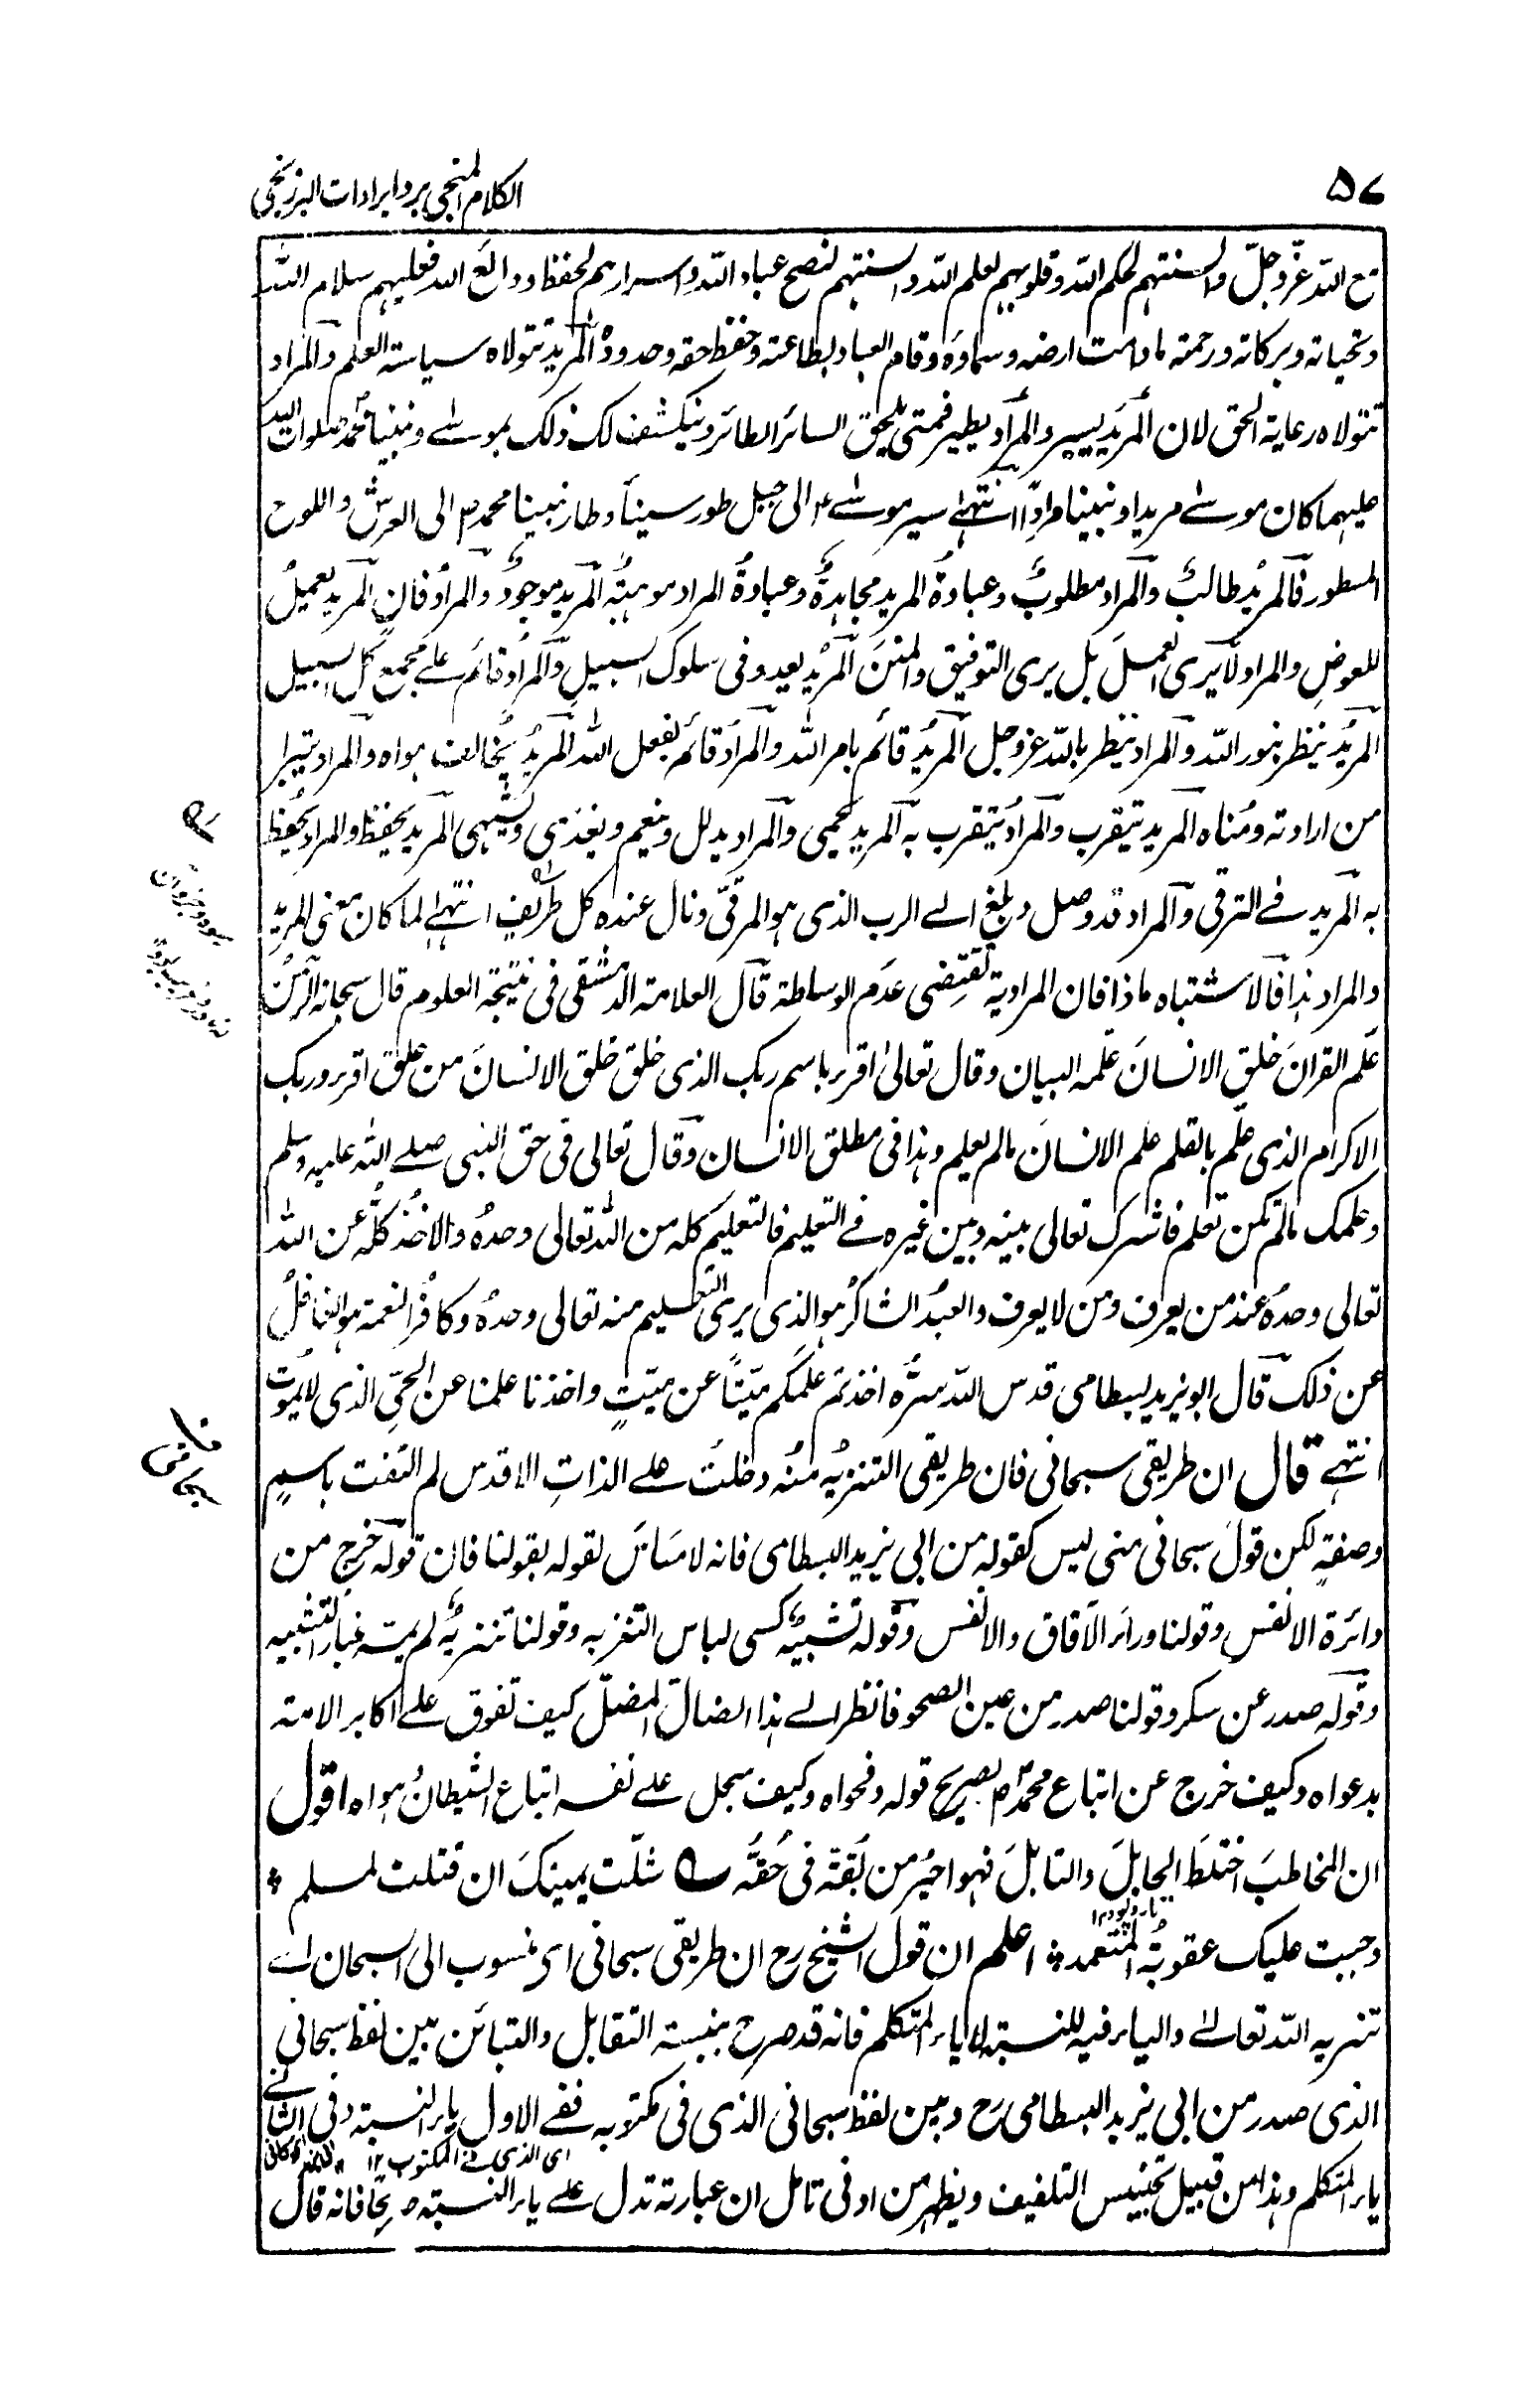 ۵۷
الكلام المنجی برد ایرادات البرزنجی
مع الله عزّ وجلّ والسنتهم لحكم الله وقلوبهم لعلم الله والسنتهم لنصح عباد الله واسرارهم لحفظ ودائع الله فعليهم سلام الله
وتحياته وبركاته ورحمته ما دامت ارضه وسماوه وقام العباد بطاعته وحفظ حقه وحدوده المريد تتولاه سياسة العلم والمراد
تتولاه رعاية الحق لان المريد يسير والمراد يطير فمتى يلحق السائر الطائر وينكشف لك ذلك بموسى ونبينا محمد صلوات الله
عليهما كان موسى مريدا ونبينا مرادا انتهى سير موسى ع الى جبل طور سينا وطار نبينا محمد ص الى العرش واللوح
المسطور فالمريد طالبٌ والمراد مطلوبٌ وعبادة المريد مجاهدةٌ وعبادةُ المراد موهبةٌ المريد موجودٌ والمراد فانٍ المريد يعمل
للعوضِ والمراد لا يرى العمل بل يرى التوفيق والمنن المريد يعيد وفى سلوك السبيل والمراد قائم على مجمع كل السبيل
المريد ينظر بنور الله والمراد ينظر بالله عز وجل المريد قائم بامر الله والمراد قائم بفعل الله المريد يخالف هواه والمراد يتبرا
من ارادته ومُناه المريد يتقرب والمراد يتقرب به المريد يحمى والمراد يدلل وينعم ويغذى ويشهى المريد يحفظ والمراد يحفظ
به المريد فے الترقى والمراد قد وصل وبلغ الے الرب الذى هو المرقى ونال عنده كل طريف انتهى لما كان معنى المريد
والمراد هذا فالاشتباه ما ذا فان المرادية تقتضى عدم الوساطة قال العلامة الدمشقى فى نتيجة العلوم قال سبحانه الرحمن
علم القران خلق الانسان علمه البيان وقال تعالى اقرء باسم ربك الذى خلق خلق الانسان من علق اقرء وربك
الاكرام الذى علّم بالقلم علم الانسان مالم يعلم وهذا فى مطلق الانسان وقال تعالى فى حق النبى صلے الله عليه وسلم
وعلمك مالم تكن تعلم فاشرك تعالى بينه وبين غيره فے التعليم فالتعليم كله من الله تعالى وحدهُ والاخذ كلّه عن الله
تعالى وحدهُ عند من يعرف ومن لا يعرف والعبدُ الشاكرُ هو الذى يرى التعليم منه تعالى وحدهُ وكافرُ النعمة هو الغافلُ
عن ذلك قال ابويزيد البسطامى قدس الله سرّه اخذتم علمكم ميّتاً عن ميّتٍ واخذنا علمنا عن الحىّ الذى لا يموت
انتهى قال ان طريقى سبحانى فان طريقى التنزيه منه دخلتُ على الذاتِ الاقدس لم التفت باسمٍ
وصفةٍ لكن قول سبحانى منى ليس كقوله من ابى يزيد البسطامى فانه لا مساس لقوله بقولنا فان قوله خرج من
دائرة الانفس وقولنا وراء الآفاق والانفس وقوله تشبيهٌ كسى لباس التنزيه وقولنا تنزيهٌ لم يمسه غبار التشبيه
وقوله صدر عن سكر وقولنا صدر من عين الصحو فانظر الے هذا الضال المضلّ كيف تفوق على اكابر الامة
بدعواه وكيف خرج عن اتباع محمد ص بصريح قوله وفحواه وكيف سجل على نفسه اتباع الشيطان هواه اقول
ان المخاطبَ اختلطَ الحابلَ والنابلَ فهو احيرُ من بُقةٍ فى حُقةٍ شلّت يمينك ان قتلت لمسلم *
وجبت عليك عقوبةُ المتعمد * اعلم ان قول الشيخ رح ان طريقى سبحانى اى منسوب الى السبحان اے
تنزيه الله تعالے والياء فيه للنسبة لا ياء المتكلم فانه قد صرح بنسبة التقابل والتبائن بين لفظ سبحانى
الذى صدر من ابى يزيد البسطامى رح وبين لفظ سبحانى الذى فى مكتوبه ففى الاول ياء النسبة وفى الثانى
اى الذى فے المكتوب ۱۲
ياء المتكلم وهذا من قبيل تجنيس التلفيف ويظهر من ادنى تامل ان عبارته تدل على ياء النسبة صريحا فانه قال